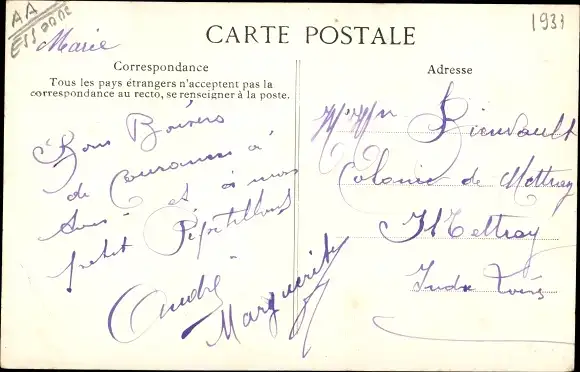 AA
ESSONNE
1931
Marie
CARTE POSTALE
Correspondance
Tous les pays étrangers n'acceptent pas la
correspondance au recto, se renseigner à la poste.
Bons Baisers
de Courances à
tous et à mon
petit
André
Marguerite
Adresse
Mr Mm Bienvault
Colonie de Mettray
Mettray
Indre Loire